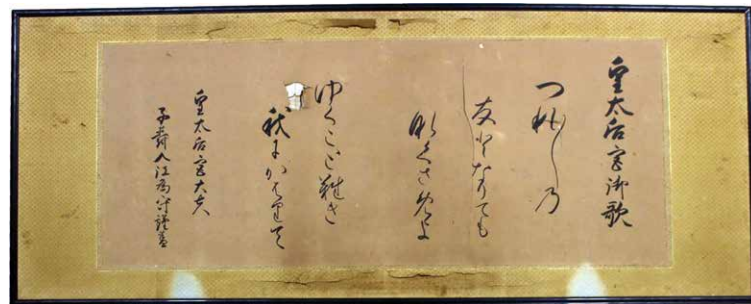 皇太后宮御歌
つれ〲の
友となりても
那くさめよ
ゆくこと難き
我にかはりて
皇太后宮大夫
子爵入江為守謹書